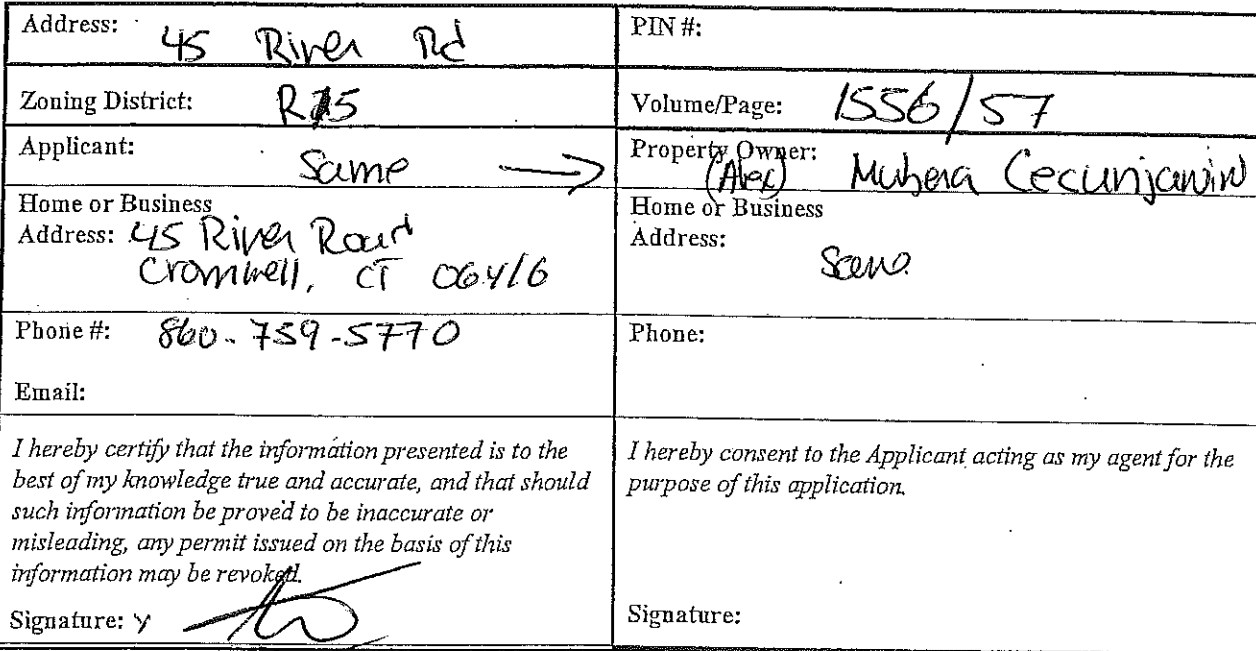 Address: 45 River Rd
PIN #:
Zoning District: R15
Volume/Page: 1556/57
Applicant: Same →
Property Owner:
(Alex) Cecunjanin
Home or Business
Address: 45 River Road
Cromwell, CT 06416
Home or Business
Address: Same
Phone #: 860-759-5770
Phone:
Email:
I hereby certify that the information presented is to the
best of my knowledge true and accurate, and that should
such information be proved to be inaccurate or
misleading, any permit issued on the basis of this
information may be revoked.
Signature: x
I hereby consent to the Applicant acting as my agent for the
purpose of this application.
Signature: